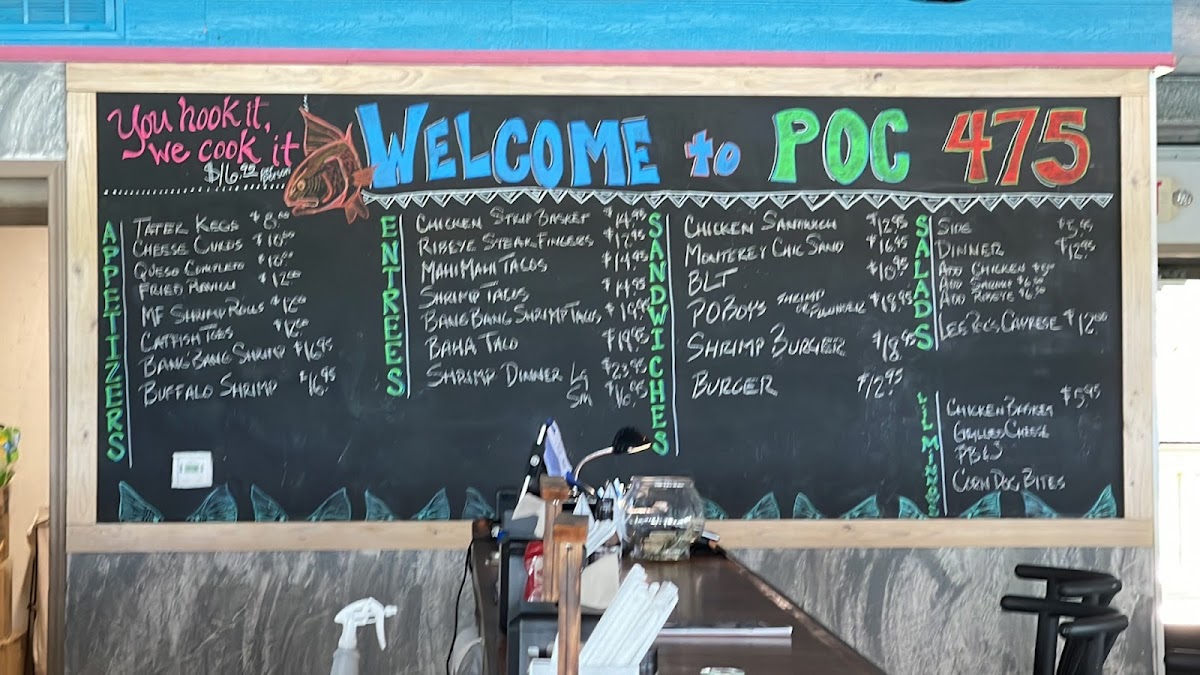 You hook it,
we cook it
$16.90 person
WELCOME to POC 475
APPETIZERS
TATER KEGS $8.00
CHEESE CURDS $10.00
QUESO COMPLETO $10.00
FRIED RAVIOLI $12.00
MF SHRIMP ROLLS $12.00
CATFISH TOES $12.00
BANG BANG SHRIMP $16.95
BUFFALO SHRIMP $16.95
ENTREES
CHICKEN STRIP BASKET $14.95
RIBEYE STEAK FINGERS $12.95
MAHI MAHI TACOS $14.95
SHRIMP TACOS $14.95
BANG BANG SHRIMP TACOS $19.95
BAHA TACO $19.95
SHRIMP DINNER LG $23.95
SM $16.95
SANDWICHES
CHICKEN SANDWICH $12.95
MONTEREY CHIC SAND $16.95
BLT $10.95
POBOYS SHRIMP OR FLOUNDER $18.95
SHRIMP BURGER $18.95
BURGER $12.95
SALADS
SIDE $5.95
DINNER $12.95
ADD CHICKEN
ADD SHRIMP $6.00
ADD RIBEYE $6.50
CAPRESE $12.00
LIL MINNOS
CHICKEN BASKET $5.95
GRILLED CHEESE
PB&J
CORN DOG BITES